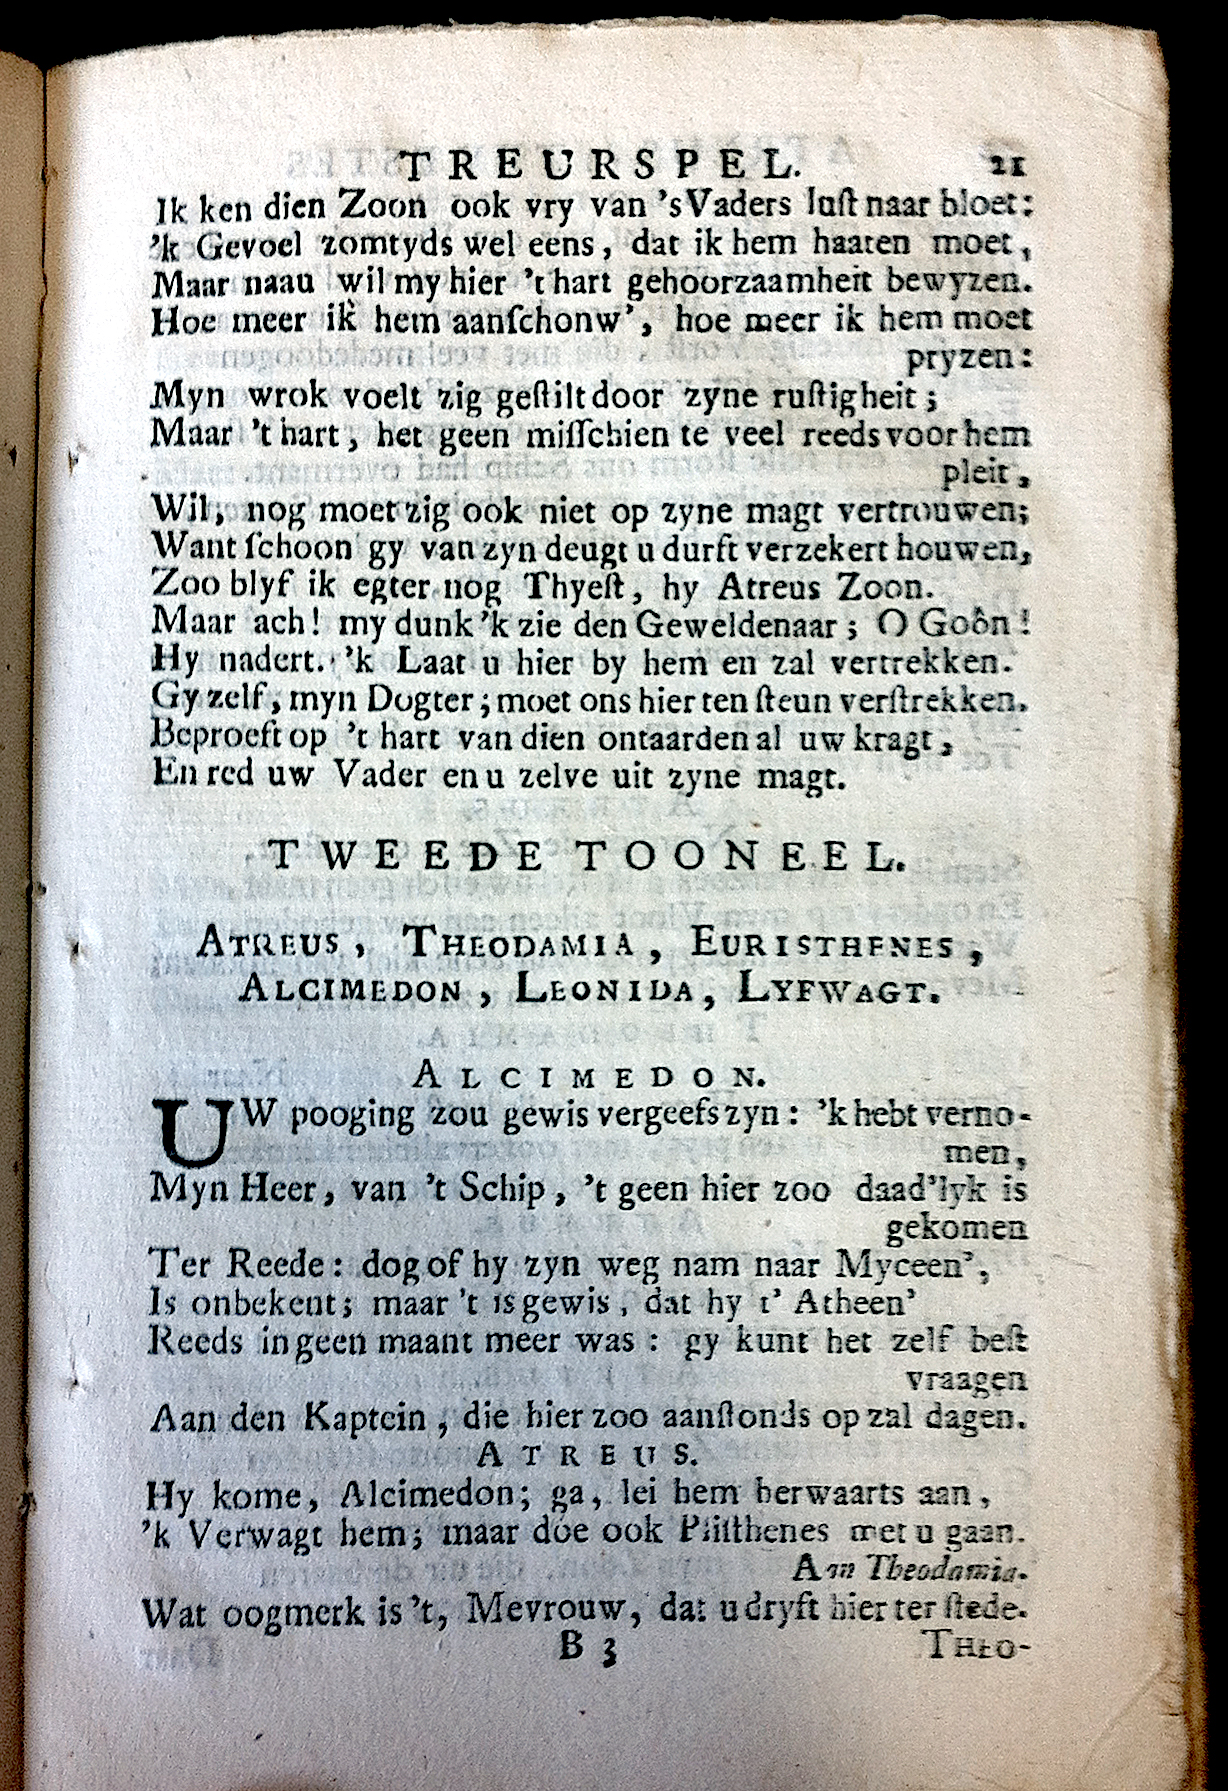 TREURSPEL. 21
Ik ken dien Zoon ook vry van 'sVaders luſt naar bloet:
'k Gevoel zomtyds wel eens, dat ik hem haaten moet,
Maar naau wil my hier 't hart gehoorzaamheit bewyzen.
Hoe meer ik hem aanſchonw', hoe meer ik hem moet
pryzen:
Myn wrok voelt zig geſtilt door zyne ruſtigheit;
Maar 't hart, het geen miſſchien te veel reeds voor hem
pleit,
Wil, nog moet zig ook niet op zyne magt vertrouwen;
Want ſchoon gy van zyn deugt u durft verzekert houwen,
Zoo blyf ik egter nog Thyeſt, hy Atreus Zoon.
Maar ach! my dunk 'k zie den Geweldenaar; O Goôn!
Hy nadert. 'k Laat u hier by hem en zal vertrekken.
Gy zelf, myn Dogter; moet ons hier ten ſteun verſtrekken.
Beproeft op 't hart van dien ontaarden al uw kragt,
En red uw Vader en u zelve uit zyne magt.
TWEEDE TOONEEL.
ATREUS, THEODAMIA, EURISTHENES,
ALCIMEDON, LEONIDA, LYFWAGT.
ALCIMEDON.
UW pooging zou gewis vergeefs zyn: 'k hebt verno-
men,
Myn Heer, van 't Schip, 't geen hier zoo daad'lyk is
gekomen
Ter Reede: dog of hy zyn weg nam naar Myceen',
Is onbekent; maar 't is gewis, dat hy t' Atheen'
Reeds in geen maant meer was: gy kunt het zelf beſt
vraagen
Aan den Kaptein, die hier zoo aanſtonds op zal dagen.
ATREUS.
Hy kome, Alcimedon; ga, lei hem herwaarts aan,
'k Verwagt hem; maar doe ook Pliſthenes met u gaan.
Aan Theodamia.
Wat oogmerk is 't, Mevrouw, dat u dryft hier ter ſtede.
B 3 THEO-